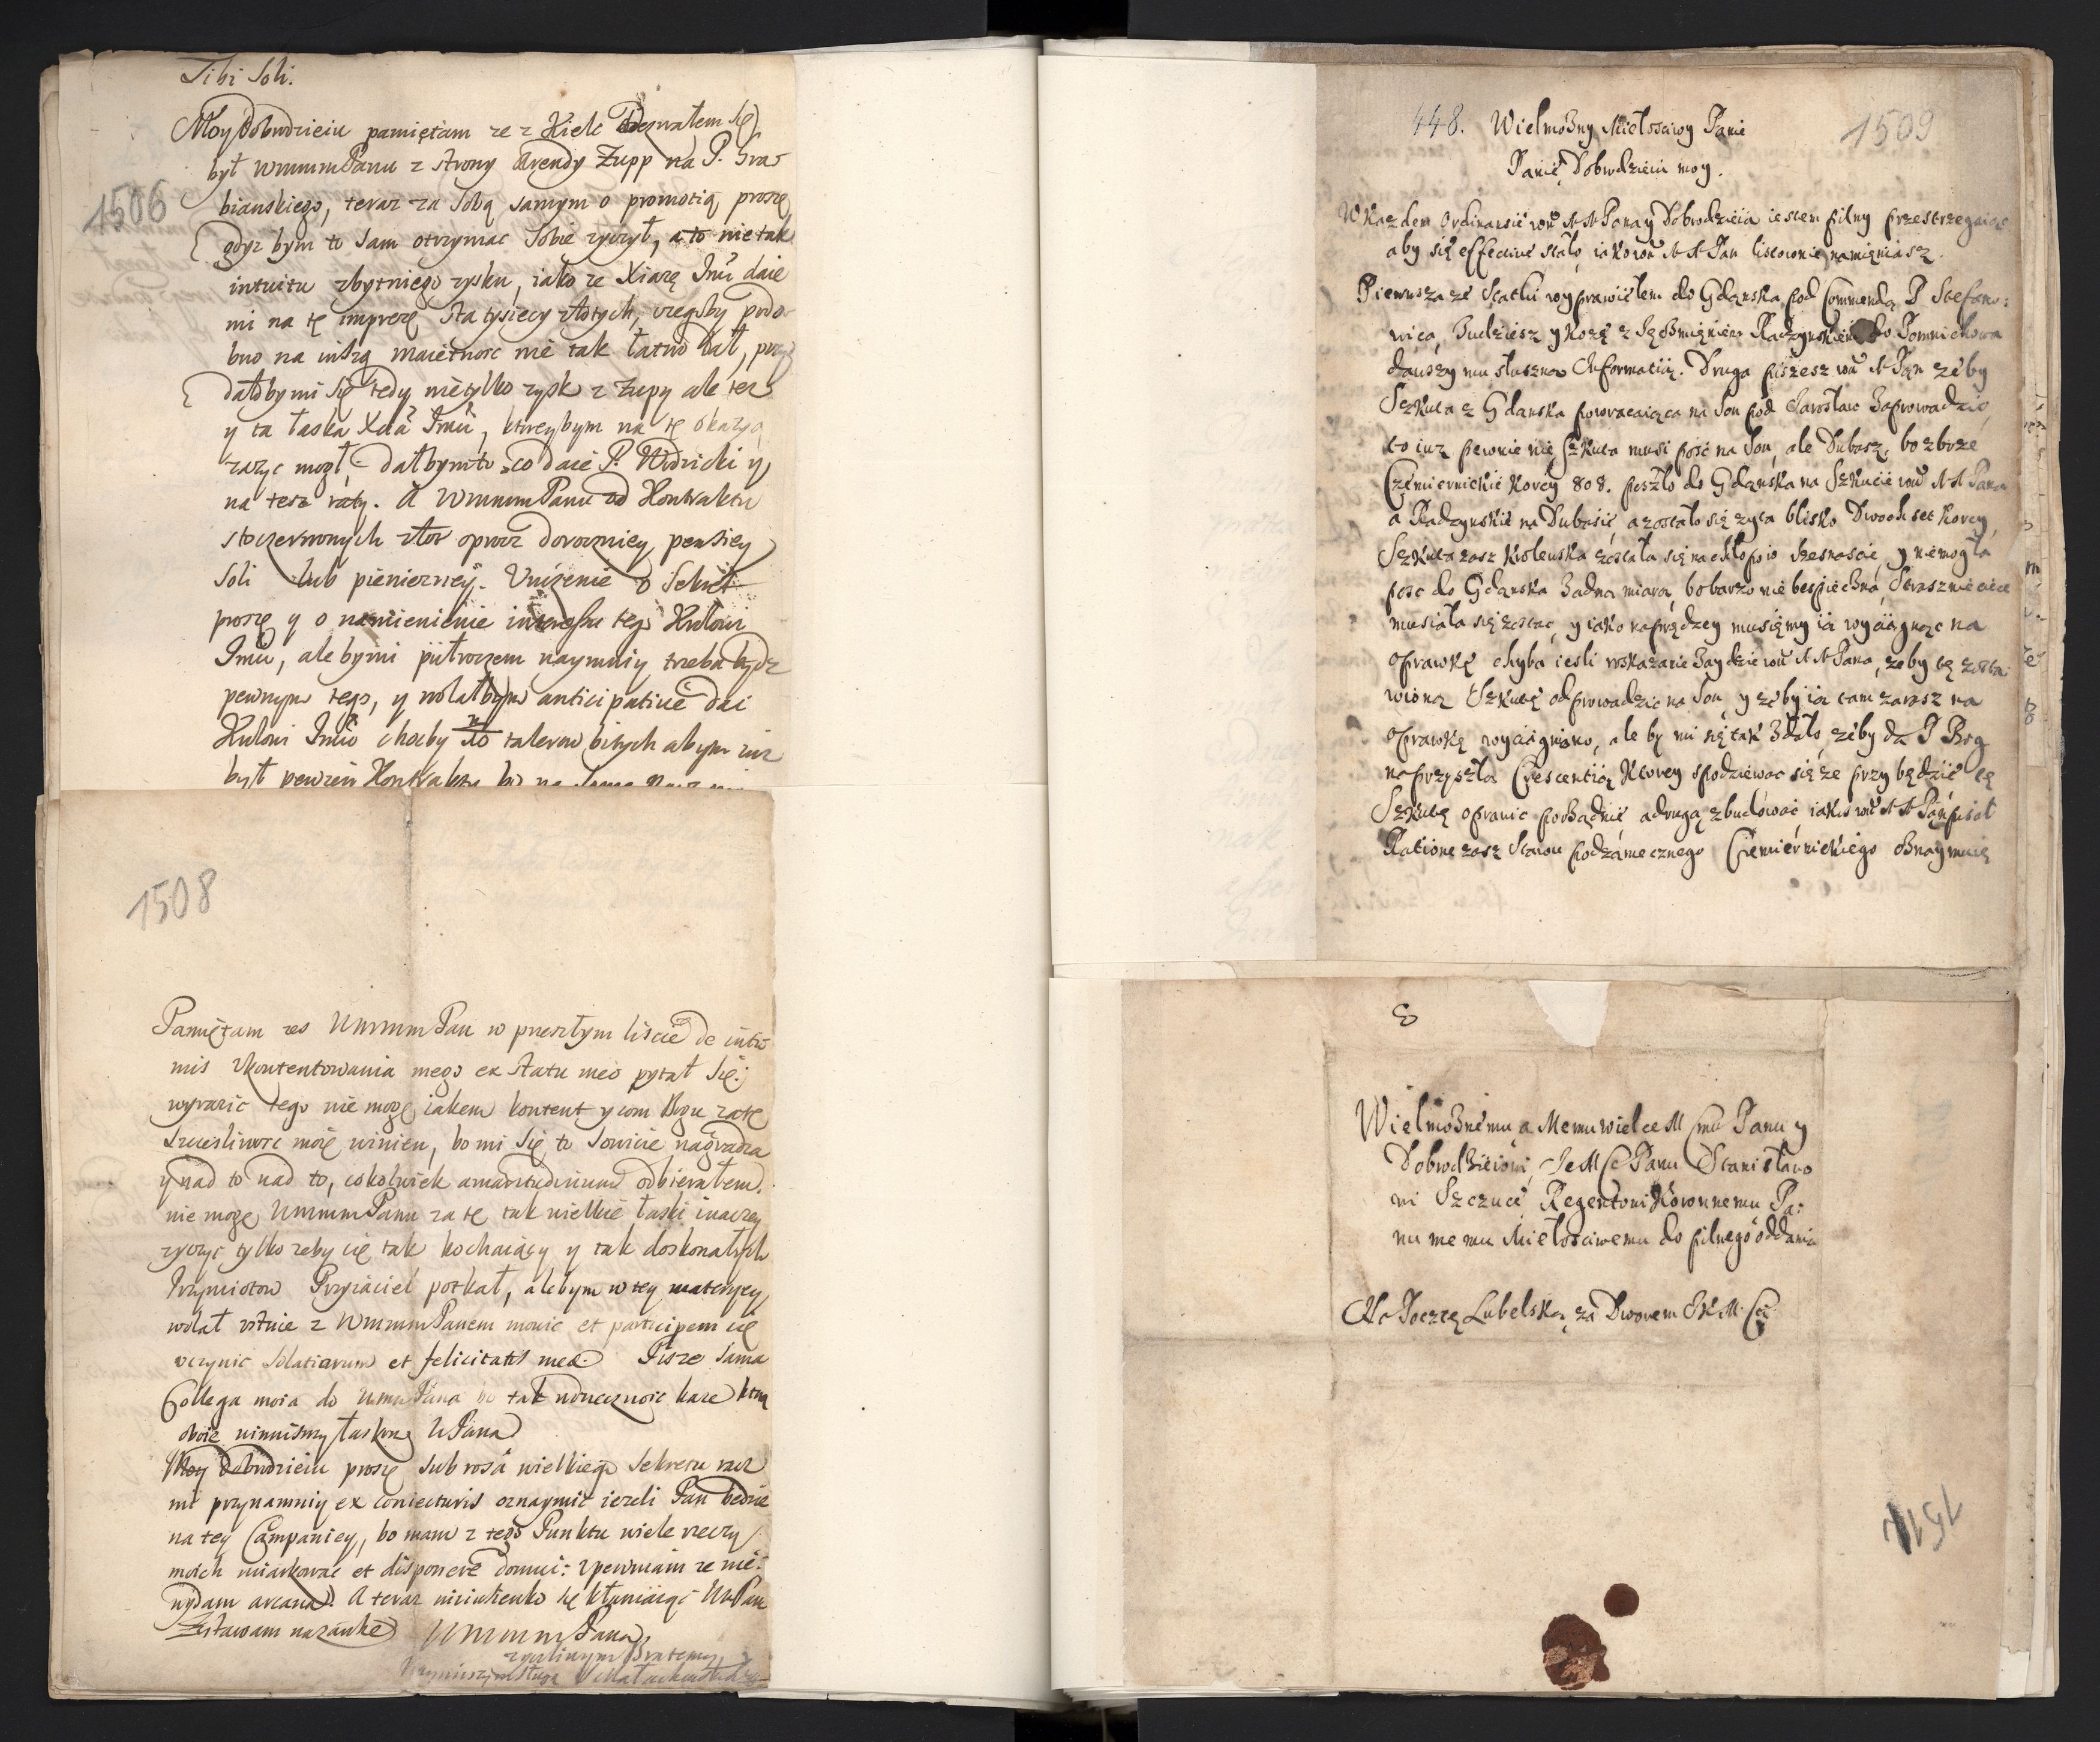 Tibi Soli.
Moy Dobrodzieiu pamiętam ze z Kielc
był Wmmm Panu z strony Arendy Zupp na P. Gra-
1506
bianskiego, teraz za sobą samym o promotią proszę
gdyz bym to sam otrzymac sobie zyczył, a to nie tak
intuitu zbytniego zysku, iako ze Xiązę Imć daie
mi na tę imprezę sta tysięcy złotych, czegoby podo-
bno na inszą maiętnosc nie tak łatwo dał,
dałoby mi się tedy nie tylko zysk z zupy ale tez
y ta łaska Xcia Imci, ktoreybym na tę okazyą
zazyc mogł. Dałbym to co daie P. Wodzicki y
na tesz raty. A Wmmm Panu od Kontraktu
sto czerwonych złot oprocz doroczney pensiey
soli lub pieniezney. Unizenie o Sekret
proszę y o namienienie interessu tego Krolowi
Imci, ale bymi piętroczem naymniey trzeba bydz
pewnym tego, y wolałbym anticipative dac
Krolowi Imci choćby talerow bitych abym iuz
był pewien Kontraktu bo na
1508
Pamiętam zes Wmmm Pan w przeszłym liscie de inti-
mis Ukontentowania mego ex statu meo pytał się:
wyrazic tego nie mogę iakem kontent y com Bogu za tę
szczesliwosc moię winien, bo mi się to sowicie nagradza
y nad to nad to, cokolwiek amaritudinum odbierałem.
nie mogę Wmmm Panu za tę tak wielkie łaski inaczey
zyczyc tylko zeby cię tak kochaiący y tak doskonałych
Przymiotow Przyiaciel potkał, alebym w tey materyey
wolał ustnie z Wmmm Panem mowic et participem cię
uczynic solatiorum et felicitatis meæ. Pisze sama
Collega moia do Wmm Pana bo tak wdzięcznosc kaze ktorą
oboie winnismy łaskom WPana
Moy Dobrodzieiu proszę sub rosâ wielkiego Sekretu racz
mi przynamniy ex coniecturis oznaymic iezeli Pan będzie
na tey Campaniey, bo mam z tego Punktu wiele rzeczy
moich miarkowac et disponere domui: upewniam ze nie-
wydam arcana. A teraz niziutenko się kłaniaiąc WmPanu
Zostawam nazawsze Wmmm Pana
zyczliwym Bratem y
Sługa
448. Wielmozny Miełosciwy Panie 1509
Panie, Dobrodzieiu moy.
W Kazdem Ordinansie WM M Pana y Dobrodzieia iestem pilny przestrzegaiąc
aby się effective stało, iako WM M Pan listownie namięniasz.
Pierwsza ze Statki wyprawiełem do Gdąnska pod Commendą P Stefano-
wica, Budziesz y Kozę z Ięczmięniem Radzynskiem do Pomniechowa
dawszy mu słuszną Informatią. Druga piszesz WM M Pąn zeby
Szkuta z Gdanska powracaiąca na Son pod Jarosław Zaprowadzic,
to iuz pewnie nie Szkuta musi pośc na Son, ale Dubasz, bo zboze
Czemiernickie Korcy 808. poszło do Gdąnska na Szkucie WM M Pana
a Radzynskie na Dubasie, a zostało się zyta blisko Dwoch set Korcy,
Szkuta zasz Krolewska została się na chłopow szesnascie, y niemogła
posc do Gdanska Zadną miarą, bo barzo nie bespieczna, Strasznie ciec
musiała się zostac, y iako naprędzey musięmy ią wyciągnąc na
oprawkę chyba iesli wskazanie Zaydzie WM M Pana, zeby tę zosta-
wioną Szkutę odprowadzic na Son, y zeby ią tam zarasz na
oprawkę wyciągniono, ale by mi się tak Zdało, zeby da P Bog
na przyszłą Crescentią Ktorey spodziewac się ze przybędzie tę
Szkutę opranic porządnie a drugą zbudowac, iakos WM M Pąn pisał
Ratione zasz Stawu podzamecznego Czemiernickiego oznaymuię
8
Wielmoznemu a Memu wielce M Cmu Panu y
Dobrodzieiowi, Je M Ci Panu Stanisławo
wi Szczuce Regentowi Koronnemu Pa-
nu memu Miełosciwemu do pilnego oddania
Na Pocztę Lubelską za Dworem JKM Ci